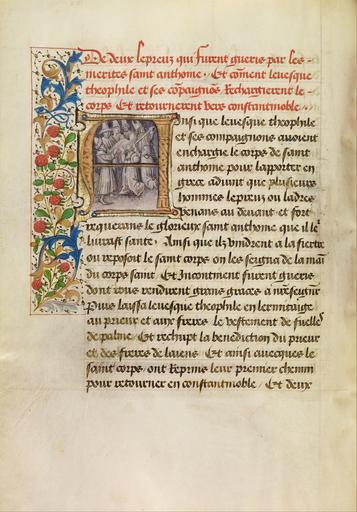 De deux lepreux qui furent gueris par les
merites saint anthome. Et coment leuesque
theophile et ses copaignos Rechargierent le
corps Et retournerent vers constantinoble.
Ainsi que leuesque theophile
et ses compaignons auoient
enchargie le corps de saint
anthome pour lapporter en
grece aduint que pluseurs
hommes lepreux ou ladres
venans au deuant et fort
requerans le glorieux saint anthome que il le
liurast sante. Ainsi que ilz vindrent a la fiertre
ou reposoit le saint corps on les seigna de la main
du corps saint. Et Incontment furent gueris
dont tous rendirent grans graces a nre seignr
Puis laissa leuesque theophile en lermitaige
au prieur et aux freres le vestement de fuelles
de palme. Et rechupt la benediction du prieur
et des freres de laiens. Et ainsi auecques le
saint corps ont Reprins leur premier chemin
pour retourner en constantinoble. Et deux